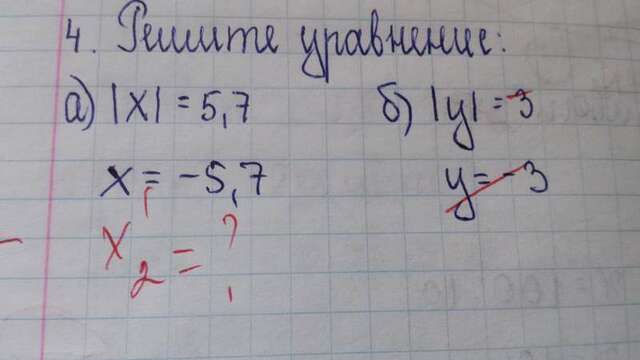 4. Решите уравнение:
а) |x| = 5,7 б) |y| = -3
x₁ = -5,7 y = -3
x₂ = ?